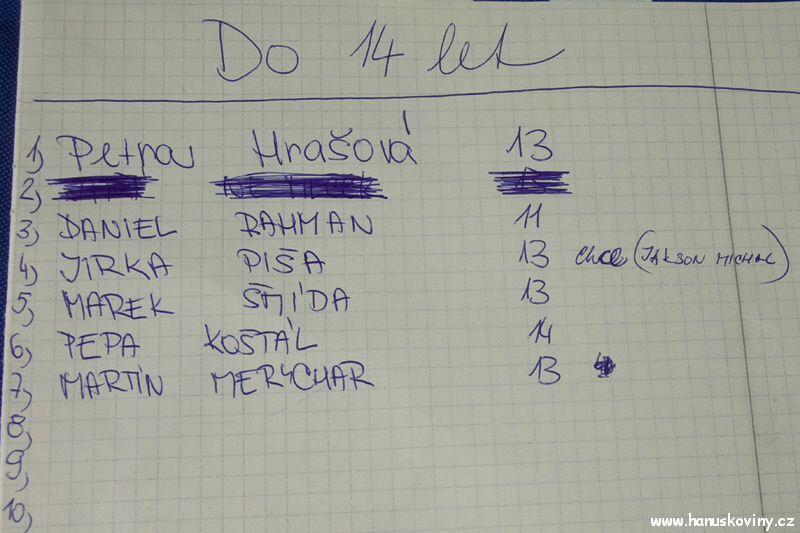 Do 14 let
1) Petra Hrašová 13
2)
3) DANIEL RAHMAN 11
4) JIRKA PÍŠA 13 chce (JAKSON MICHAL)
5) MAREK ŠMÍDA 13
6) PEPA KOŠTÁL 14
7) MARTIN MERYCHAR 13
8)
9)
10)
www.hanuskoviny.cz